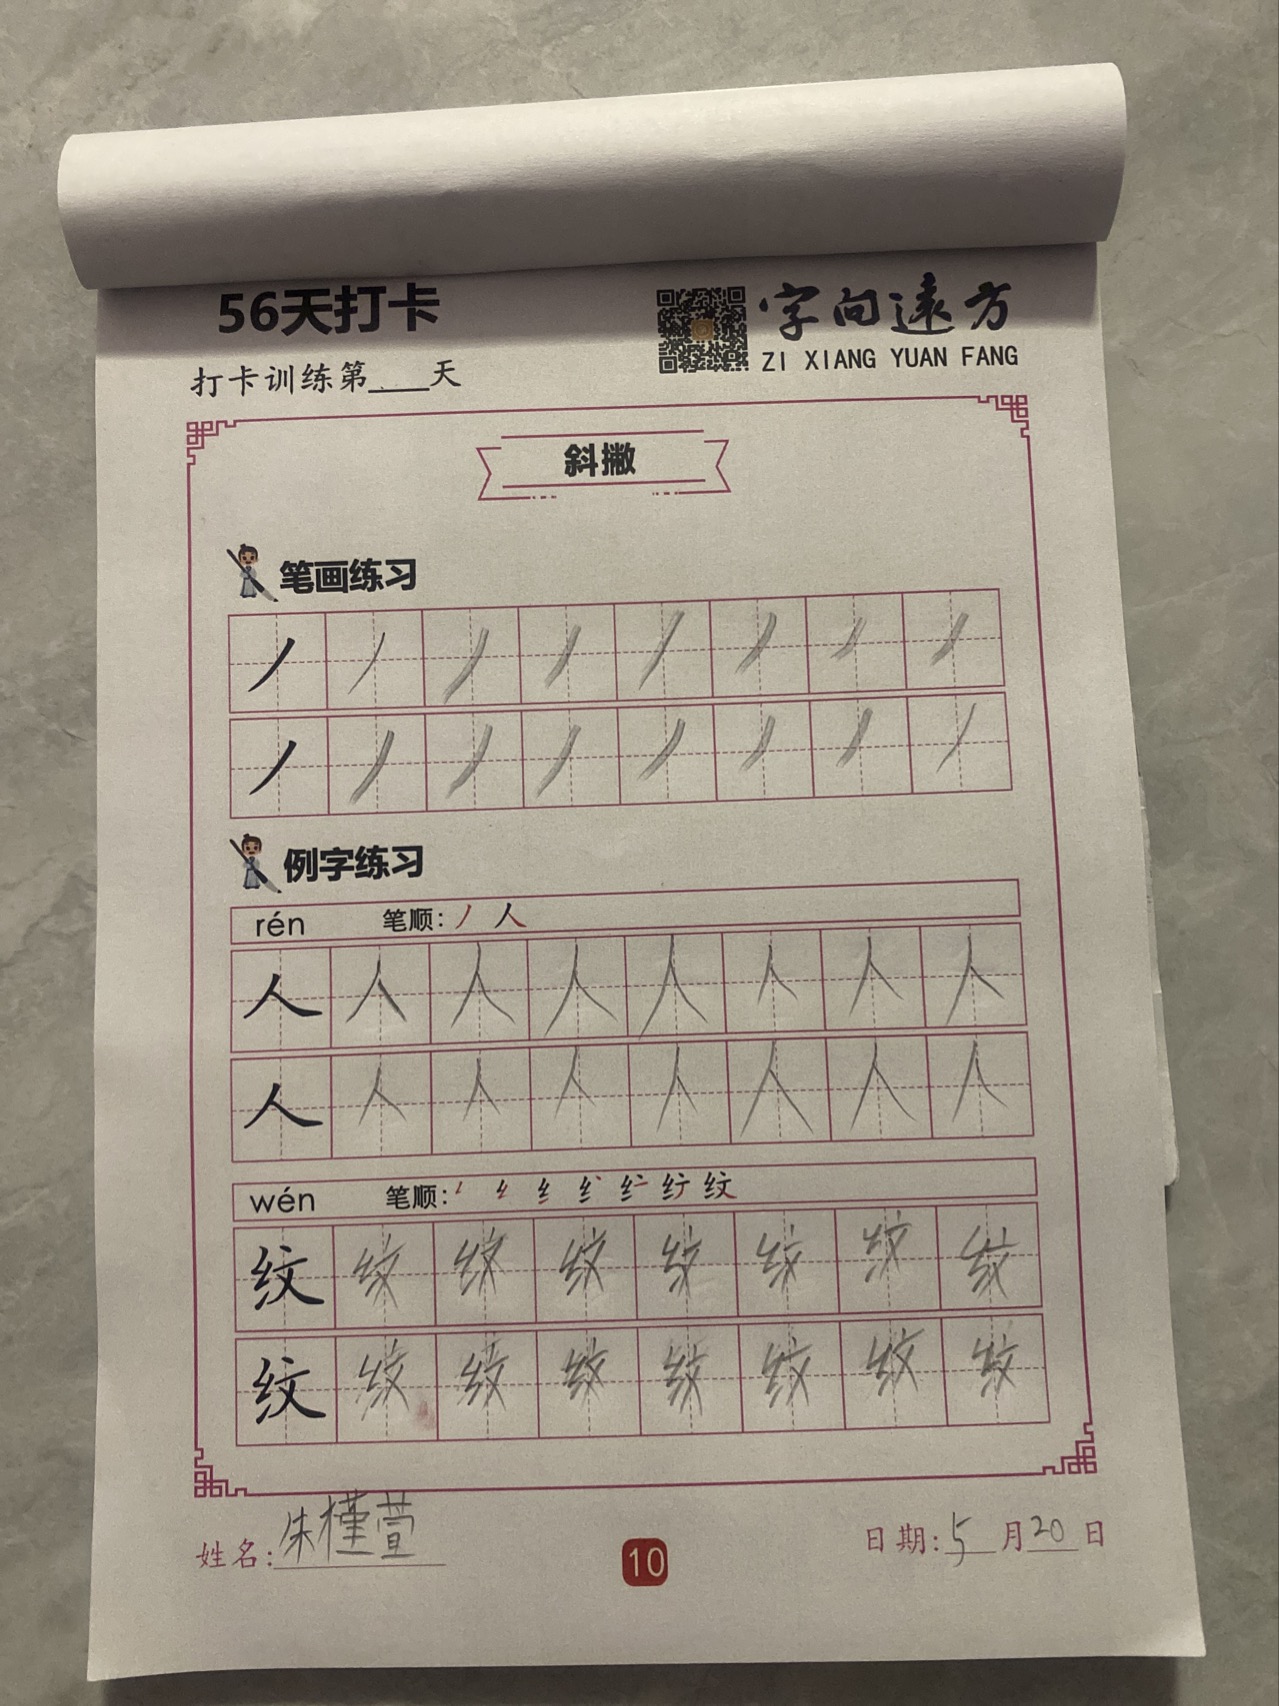 56天打卡
字向遠方
ZI XIANG YUAN FANG
打卡训练第___天
斜撇
笔画练习
丿丿丿丿丿丿丿丿
丿丿丿丿丿丿丿丿
例字练习
rén 笔顺: 丿 人
人人人人人人人人
人人人人人人人人
wén 笔顺: 纟 纹
纹纹纹纹纹纹纹纹
纹纹纹纹纹纹纹纹
姓名: 朱槿萱
10
日期: 5月20日